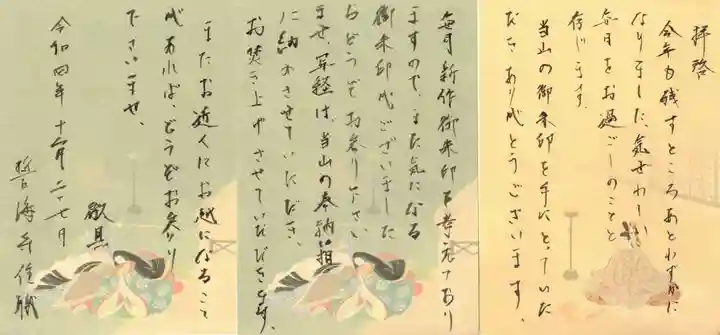 拝啓
今年も残すところあとわずかに
なりました。気ぜわしい
毎日をお過ごしのことと
存じます。
当山の御朱印を手にとっていた
だきありがとうございます。
毎月新作御朱印
ますので、また気になる
御朱印がございました
らどうぞお参り下さい
ませ。写経は、当山の奉納箱
に納めさせていただき、
お焚き上げさせていただきます。
またお近くにお越しになること
があれば、どうぞお参り
下さいませ。
敬具
令和四年十二月二十七日
誓海寺住職